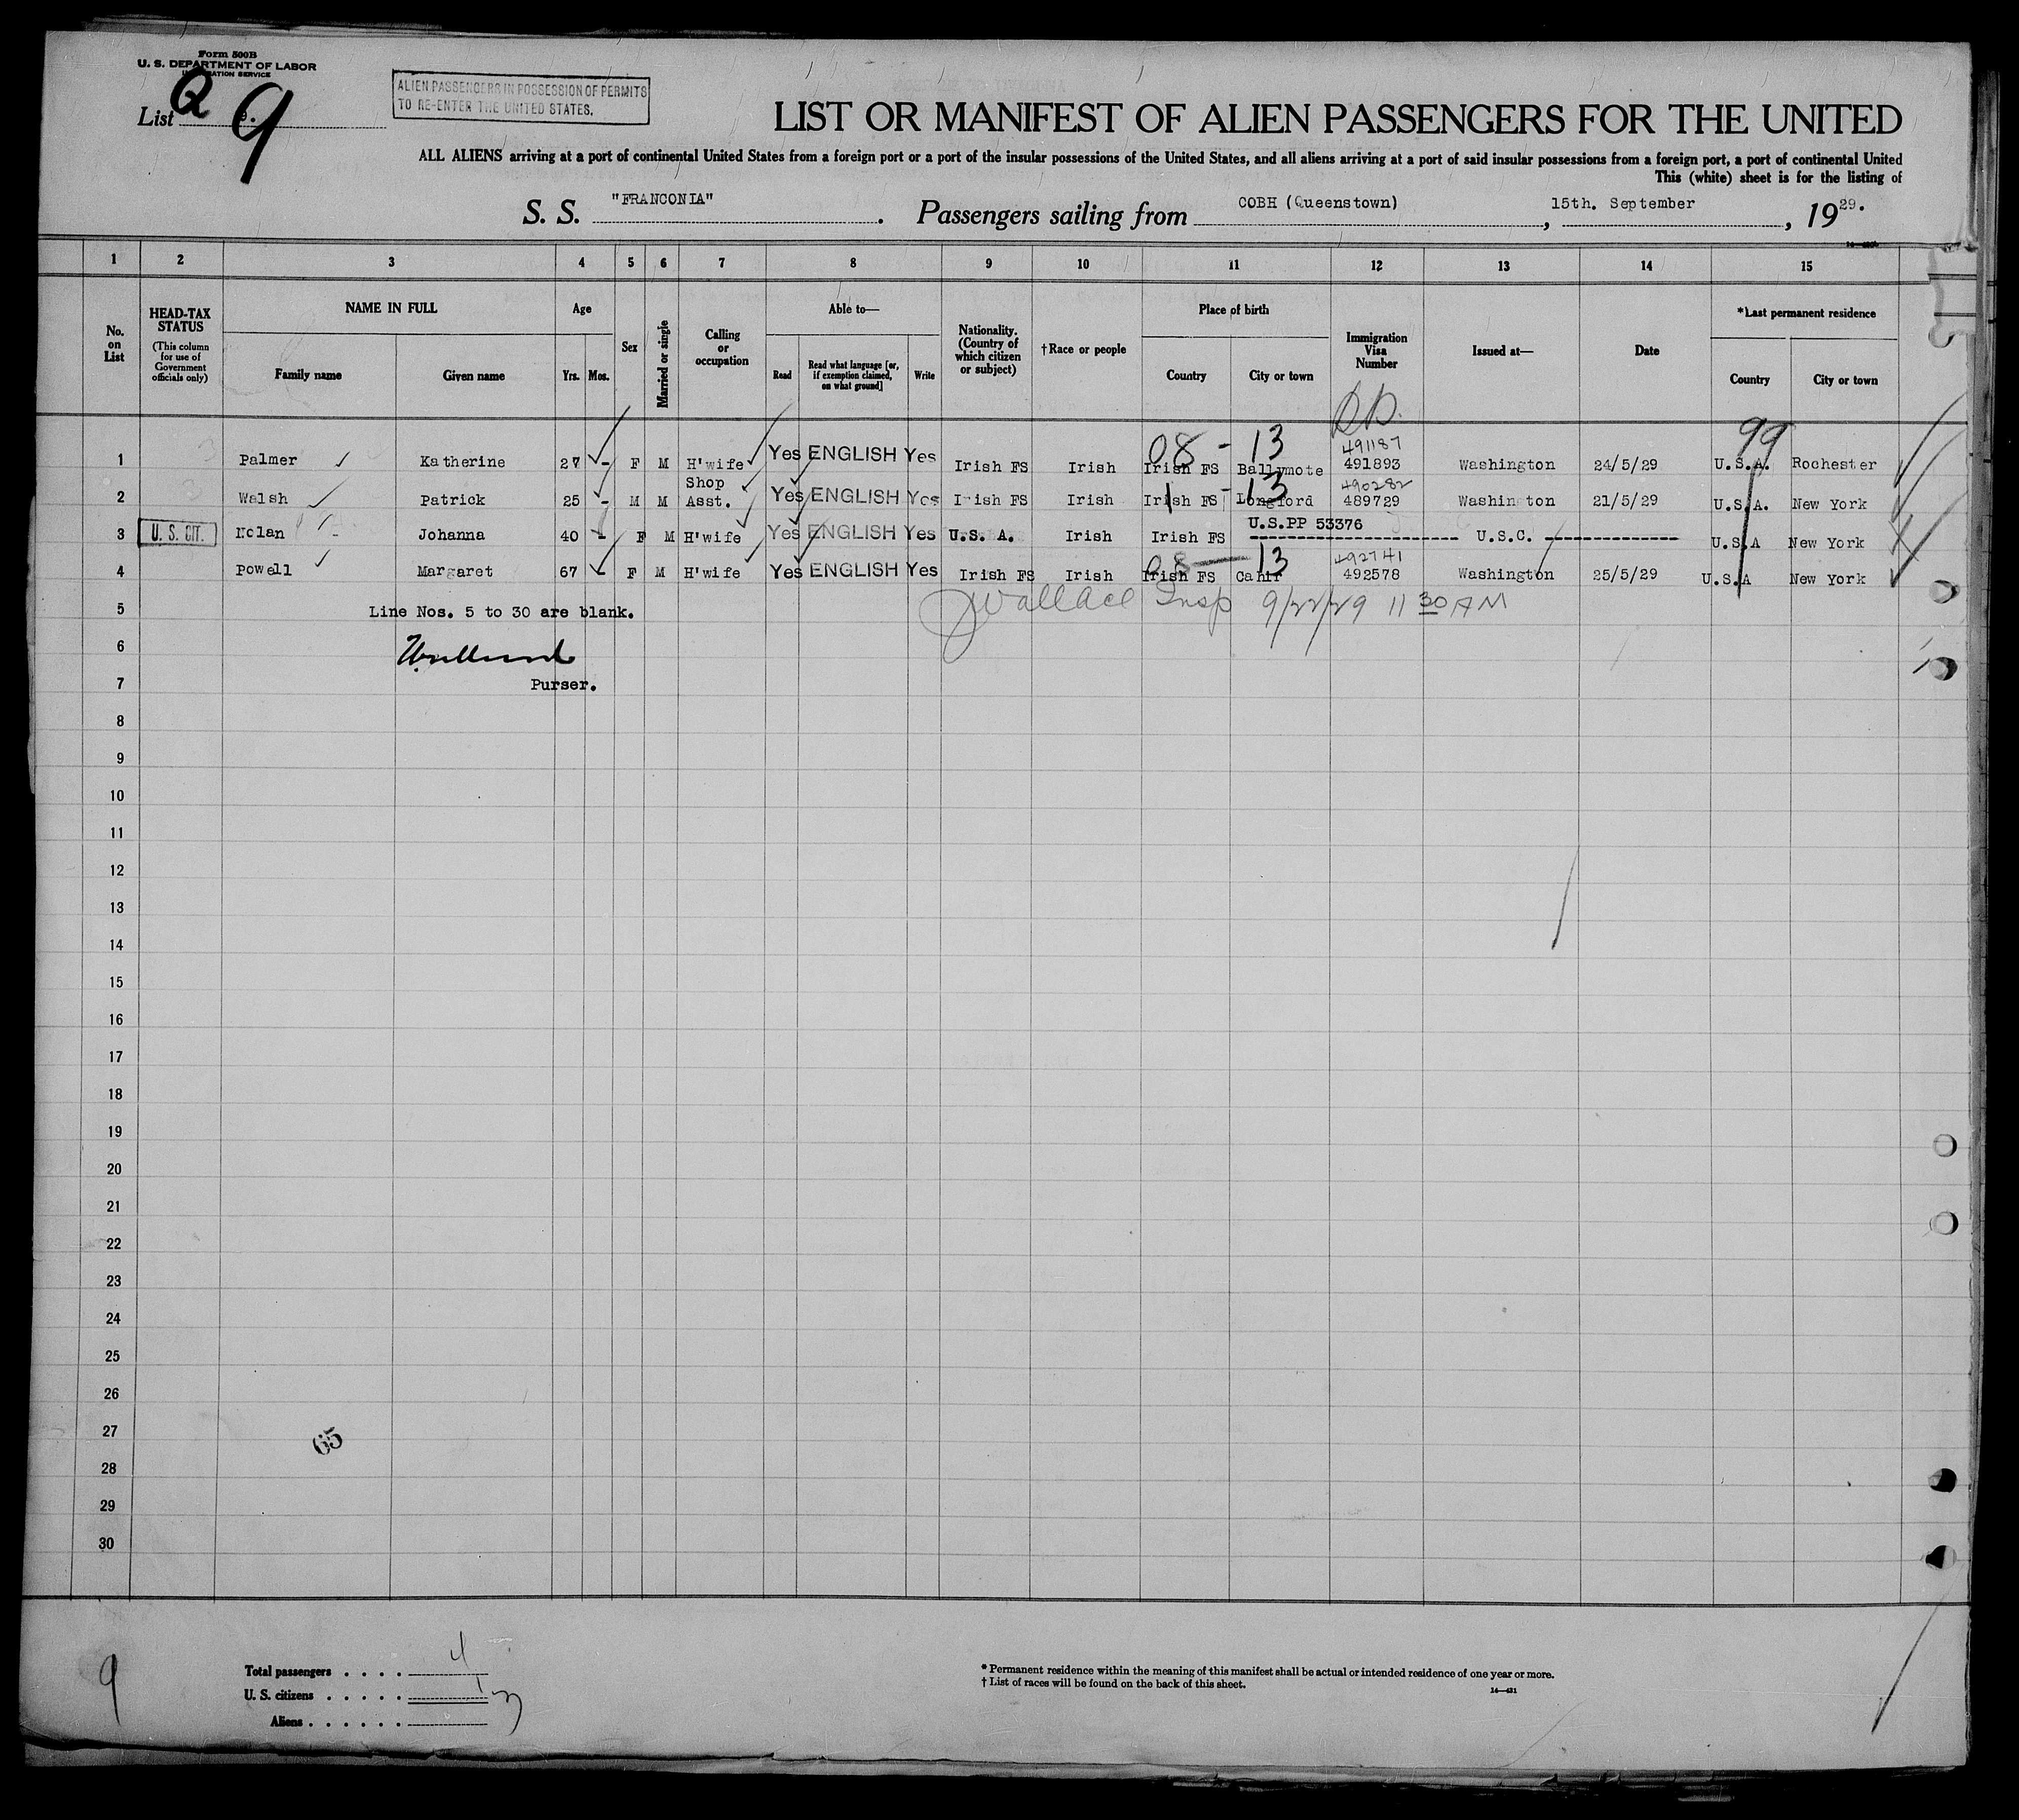 Form 500B
U. S. DEPARTMENT OF LABOR
IMMIGRATION SERVICE
List Q 9
ALIEN PASSENGERS IN POSSESSION OF PERMITS
TO RE-ENTER THE UNITED STATES.
LIST OR MANIFEST OF ALIEN PASSENGERS FOR THE UNITED
ALL ALIENS arriving at a port of continental United States from a foreign port or a port of the insular possessions of the United States, and all aliens arriving at a port of said insular possessions from a foreign port, a port of continental United
This (white) sheet is for the listing of
S. S. "FRANCONIA". Passengers sailing from COBH (Queenstown), 15th. September, 1929.
1 2 3 4 5 6 7 8 9 10 11 12 13 14 15
No. on List
HEAD-TAX STATUS
(This column for use of Government officials only)
NAME IN FULL
Family name Given name
Age
Yrs. Mos.
Sex
Married or single
Calling or occupation
Able to—
Read Read what language [or, if exemption claimed, on what ground] Write
Nationality. (Country of which citizen or subject)
†Race or people
Place of birth
Country City or town
Immigration Visa Number
Issued at—
Date
*Last permanent residence
Country City or town
08 - 13 491187 99
1 Palmer Katherine 27 - F M H'wife Yes ENGLISH Yes Irish FS Irish Irish FS Ballymote 491893 Washington 24/5/29 U.S.A. Rochester
1 - 13 490282
2 Walsh Patrick 25 - M M Shop Asst. Yes ENGLISH Yes Irish FS Irish Irish FS Longford 489729 Washington 21/5/29 U.S.A. New York
3 U. S. CIT. Nolan Johanna 40 - F M H'wife Yes ENGLISH Yes U.S. A. Irish Irish FS U.S.PP 53376 U.S.C. U.S.A New York
08 - 13 492741
4 Powell Margaret 67 F M H'wife Yes ENGLISH Yes Irish FS Irish Irish FS Cahir 492578 Washington 25/5/29 U.S.A New York
5 Line Nos. 5 to 30 are blank. J Wallace Insp 9/22/29 11 30 AM
6
7 Purser.
8
9
10
11
12
13
14
15
16
17
18
19
20
21
22
23
24
25
26
27 65
28
29
30
9
Total passengers . . . . 4
U. S. citizens . . . . . 1
Aliens . . . . . . 3
* Permanent residence within the meaning of this manifest shall be actual or intended residence of one year or more.
† List of races will be found on the back of this sheet.
14—431